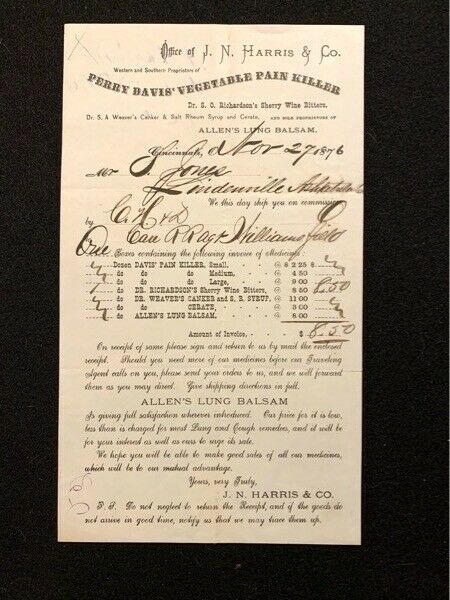 Office of J. N. HARRIS & CO.
Western and Southern Proprietors of
PERRY DAVIS' VEGETABLE PAIN KILLER
Dr. S. O. Richardson's Sherry Wine Bitters,
Dr. S. A Weaver's Canker & Salt Rheum Syrup and Cerate, AND SOLE PROPRIETORS OF
ALLEN'S LUNG BALSAM.
Cincinnati, Nov 27 1876
Mr J. Jones
Lindenville Ashtabula Co
We this day ship you on commission
by C. H & D O
One Care R R Agt Williamsfield
Boxes containing the following invoice of Medicines:
Dozen DAVIS' PAIN KILLER, Small, @ $ 2 25
do do do Medium, @ 4 50
do do do Large, @ 9 00
1 do DR. RICHARDSON'S Sherry Wine Bitters, @ 8 50 8.50
do DR. WEAVER'S CANKER and S. R. SYRUP, @ 11 00
do do CERATE, @ 3 00
do ALLEN'S LUNG BALSAM, @ 8 00
Amount of Invoice, $ 8.50
On receipt of same please sign and return to us by mail the enclosed
receipt. Should you need more of our medicines before our Traveling
Agent calls on you, please send your orders to us, and we will forward
them as you may direct. Give shipping directions in full.
ALLEN'S LUNG BALSAM
Is giving full satisfaction wherever introduced. Our price for it is low,
less than is charged for most Lung and Cough remedies, and it will be
for your interest as well as ours to urge its sale.
We hope you will be able to make good sales of all our medicines,
which will be to our mutual advantage.
Yours, very Truly,
J. N. HARRIS & CO.
P. S. Do not neglect to return the Receipt, and if the goods do
not arrive in good time, notify us that we may trace them up.